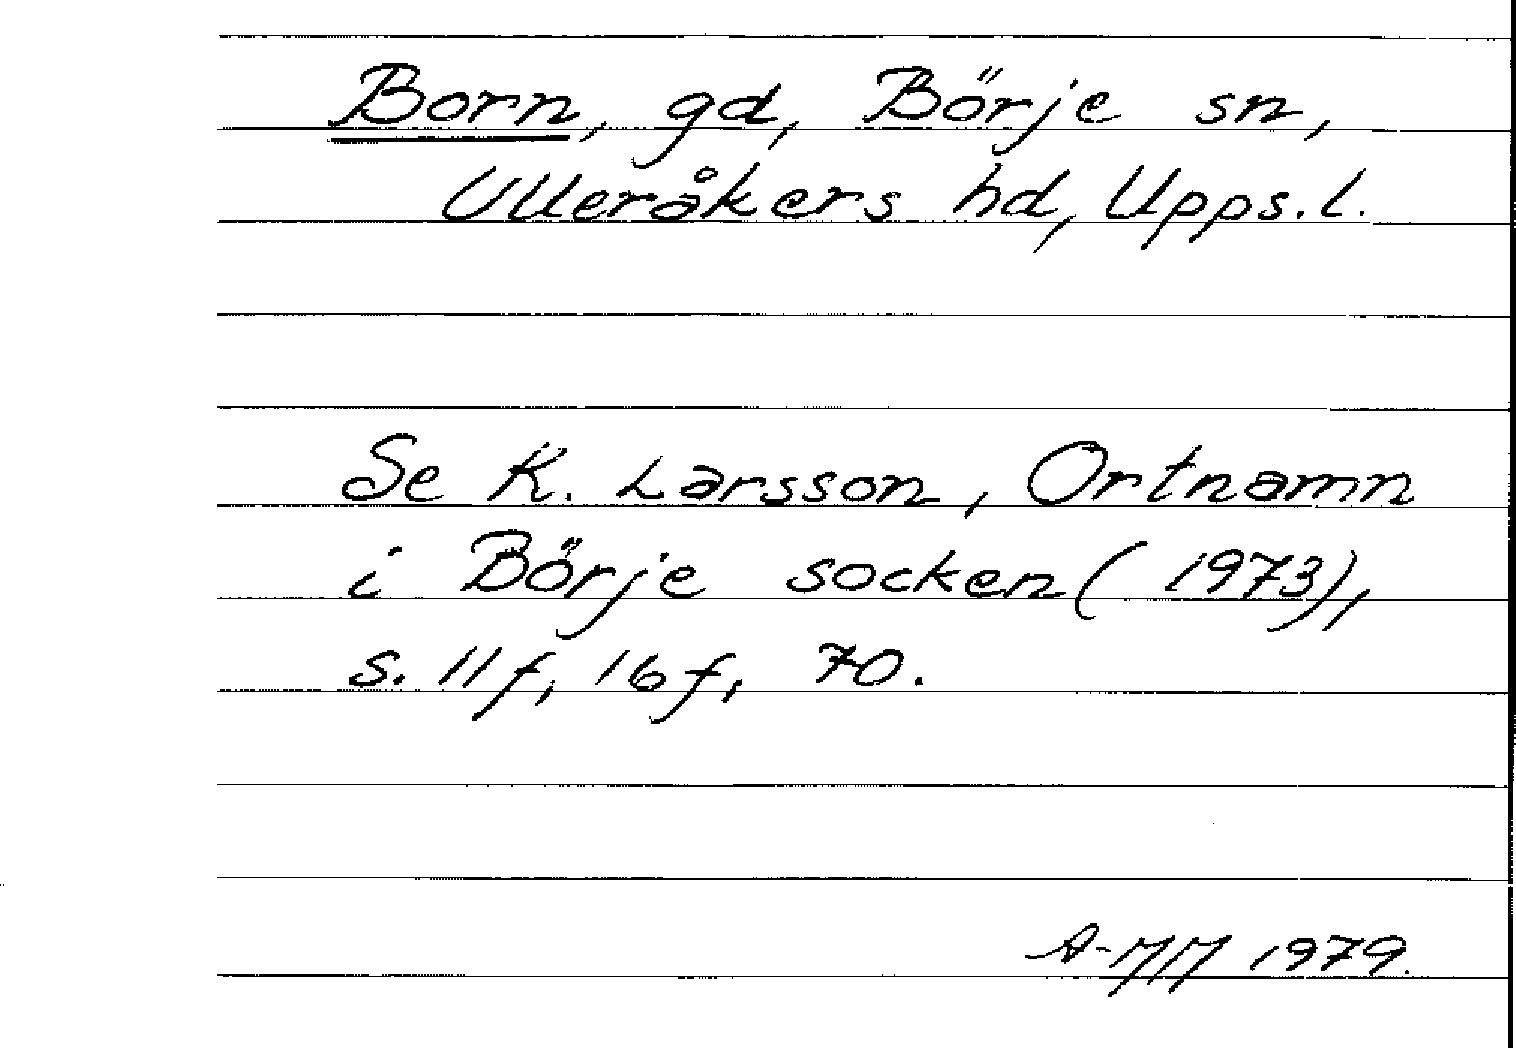 Born, gd, Börje sn,
Ulleråkers hd, Upps. l.
Se K. Larsson, Ortnamn
i Börje socken (1973),
s. 11 f, 16 f, 70.
A-MM 1979.